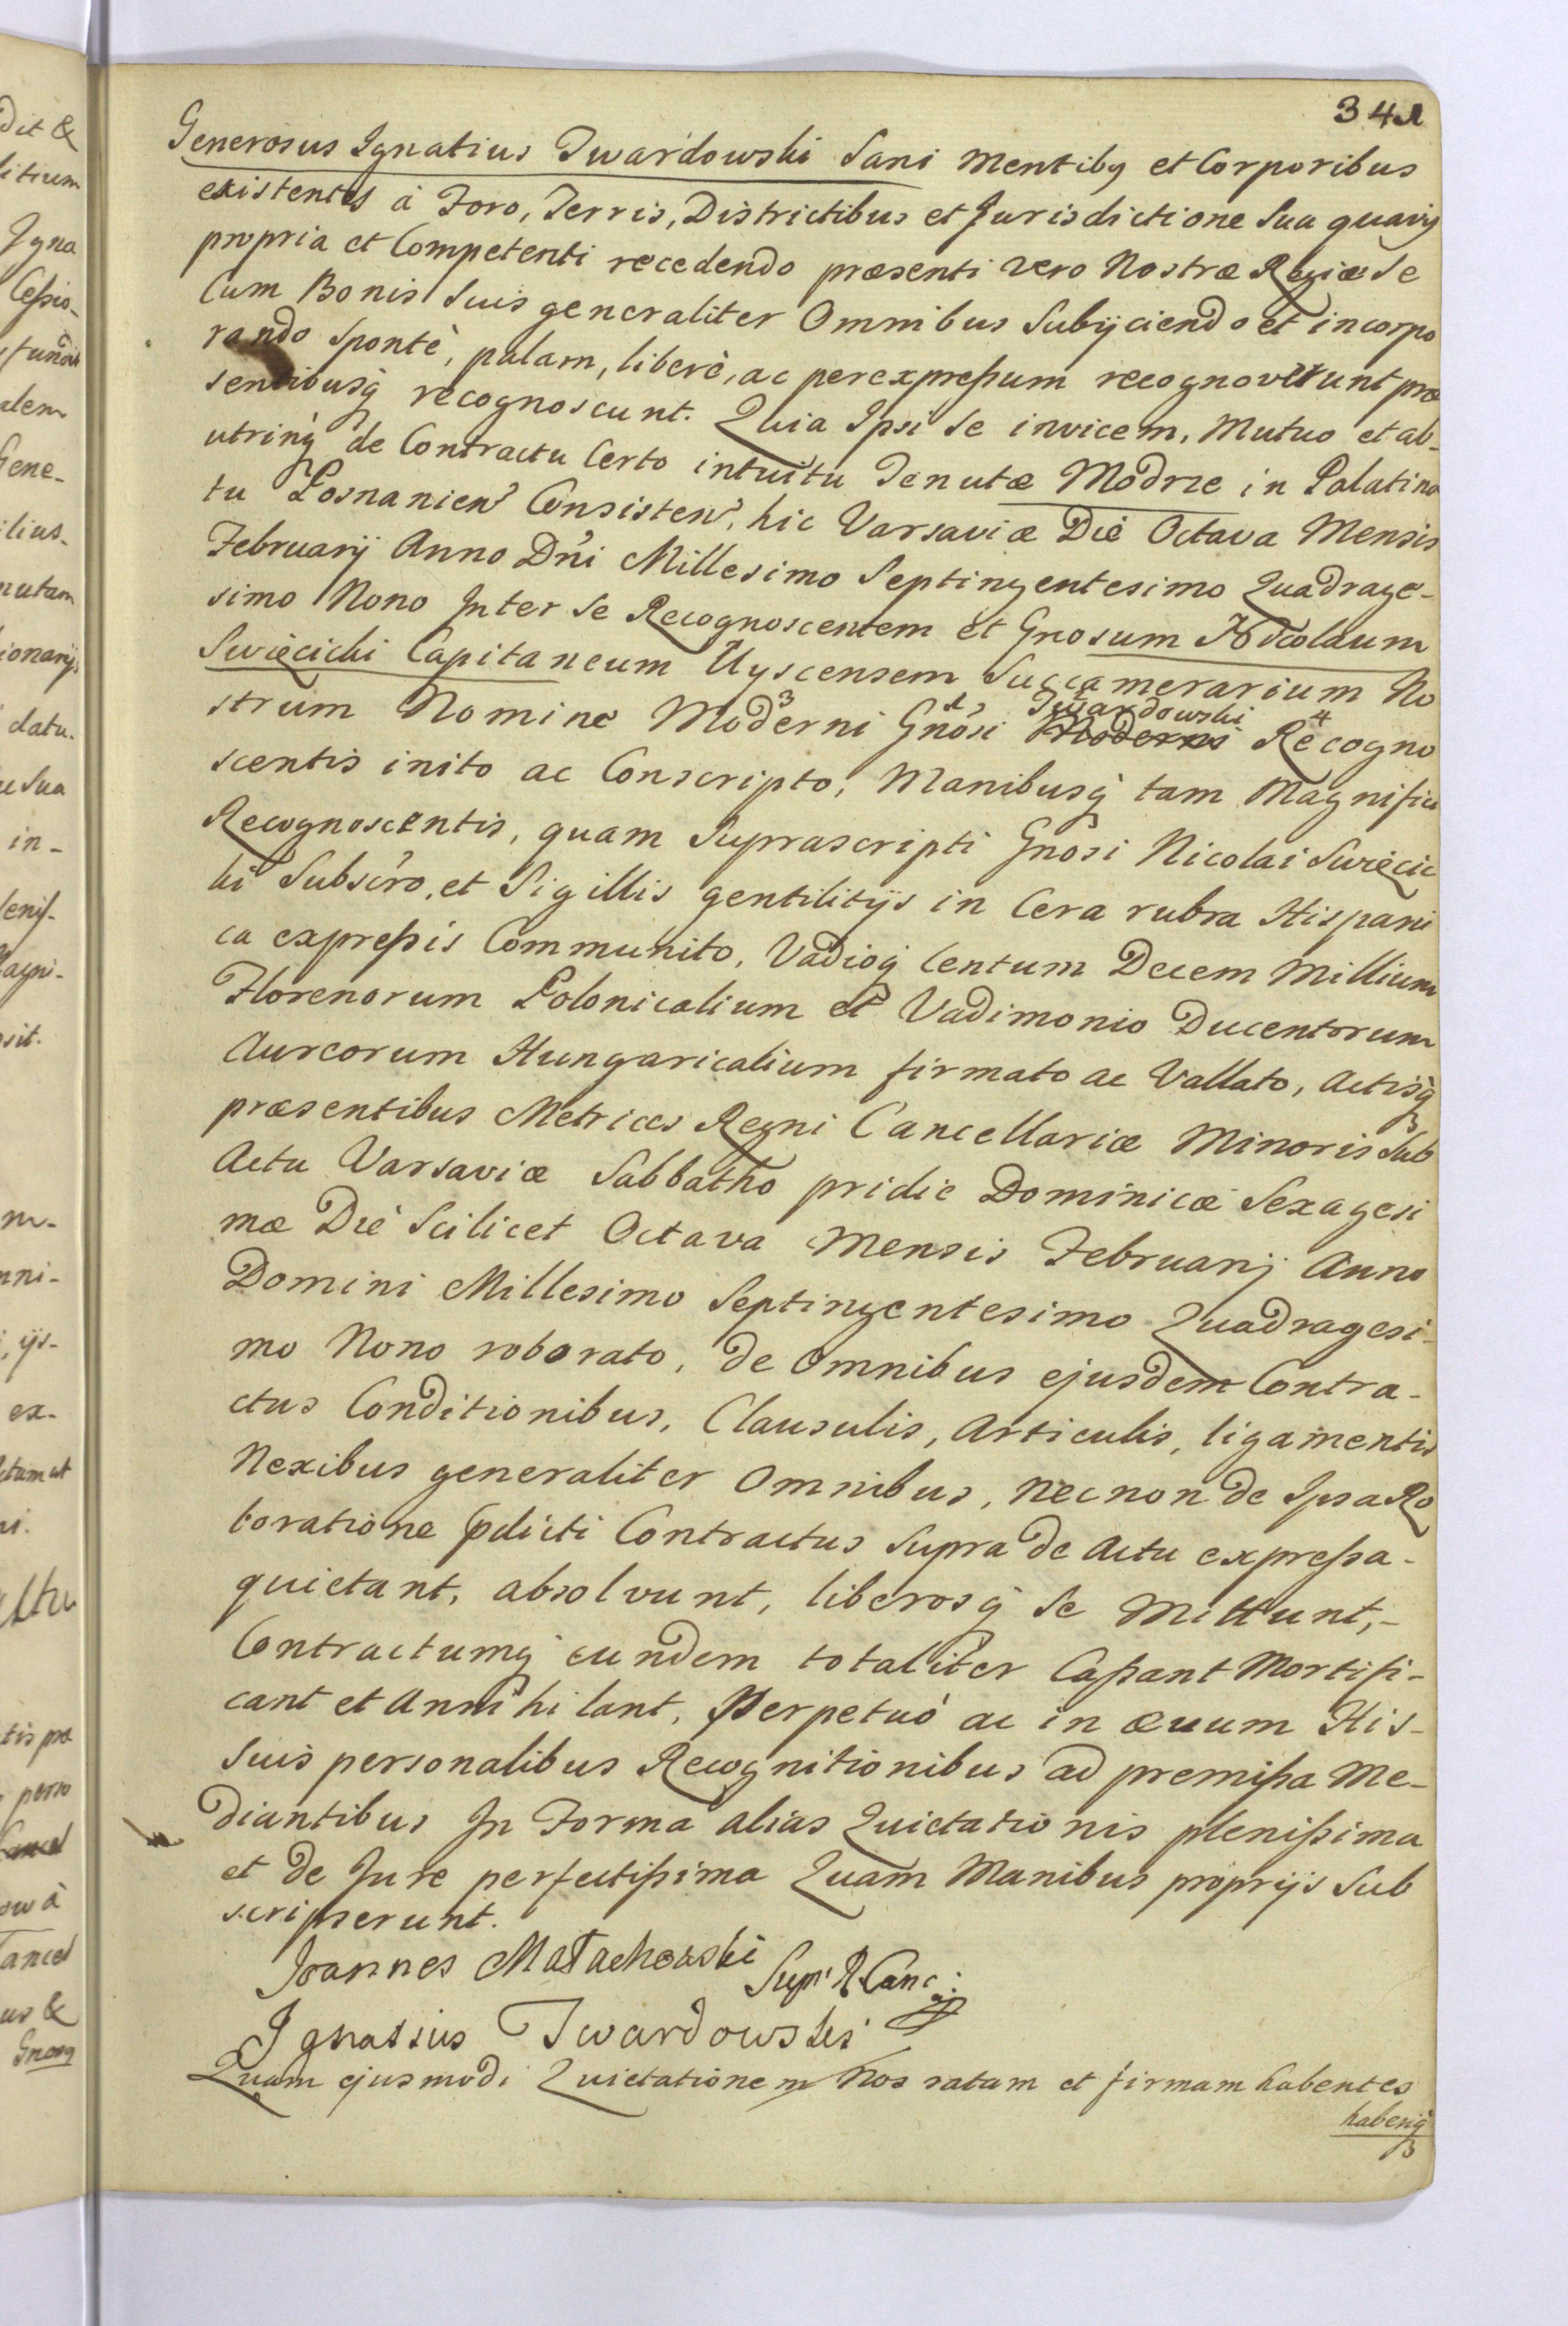 34
Generosus Ignatius Twardowski Sani Mentibq et Corporibus
existentes à Foro, Terris, Districtibus et Jurisdictione Sua quavis
propria et Competenti recedendo præsenti vero Nostræ Regiæ Se
Cum Bonis Suis generaliter Omnibus Subijciendo et incorpo
rando Sponte, palam, liberè, ac per expreßum recognoverunt præ
sentibusq recognoscunt. Quia Ipsi Se invicem, Mutuo et ab-
utrinq de Contractu Certo intuitu Tenutæ Modrze in Palatina
tu Posnanien Consisten, hic Varsaviæ Die Octava Mensis
Februarij Anno Dni Millesimo Septingentesimo Quadrage-
simo Nono Inter Se Recognoscentem et Gnosum Nicolaum
Swięcicki Capitaneum Uyscensem Succamerarium No
strum Nomine Moderni Gnosi Twardowski Recogno
scentis inito ac Conscripto, Manibusq tam Magnifici
Recognoscentis, quam Suprascripti Gnosi Nicolai Swięcic
ki Subscro, et Sigillis gentilitijs in Cera rubra Hispani
ca expreßis Communito, Vadioq Centum Decem Millium
Florenorum Polonicalium et Vadimonio Ducentorum
Aureorum Hungaricalium firmato ac Vallato, Actisq
præsentibus Metrices Regni Cancellariæ Minoris Sub
Actu Varsaviæ Sabbatho pridie Dominicæ Sexagesi
mæ Die Scilicet Octava Mensis Februarij Anno
Domini Millesimo Septingentesimo Quadragesi-
mo Nono roborato, de Omnibus ejusdem Contra-
ctus Conditionibus, Clausulis, Articulis, ligamentis
Nexibus generaliter Omnibus, necnon de Ipsa Ro
boratione pdicti Contractus Supra de Actu expreßa-
quietant, absolvunt, liberosq Se Mittunt,-
Contractumq eundem totaliter Caßant Mortifi-
cant et Annihilant, Perpetuò ac in ævum His-
Suis personalibus Recognitionibus ad premißa Me-
diantibus In Forma alias Quietationis plenißima
et de Jure perfectißima Quam Manibus proprijs Sub
scripserunt.
Joannes Małachowski Supr: R. Canc:
Ignatius Twardowski
Quam ejusmodi Quietationem Nos ratam et firmam habentes
habenq